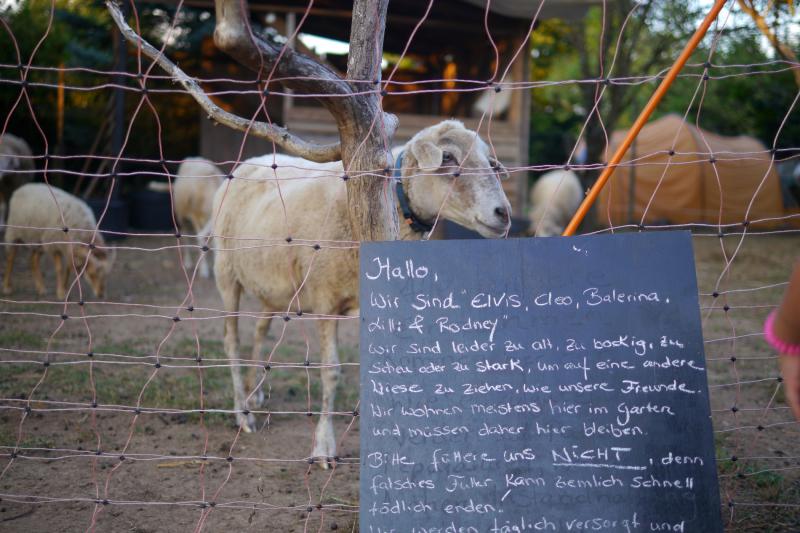 Hallo,
Wir sind "ELVIS, Cleo, Balerina,
Lilli & Rodney"
Wir sind leider zu alt, zu bockig, zu
scheu oder zu stark, um auf eine andere
Wiese zu ziehen, wie unsere Freunde.
Wir wohnen meistens hier im Garten
und müssen daher hier bleiben.
Bitte füttere uns NICHT, denn
falsches Futter kann ziemlich schnell
tödlich enden!
Wir werden täglich versorgt und